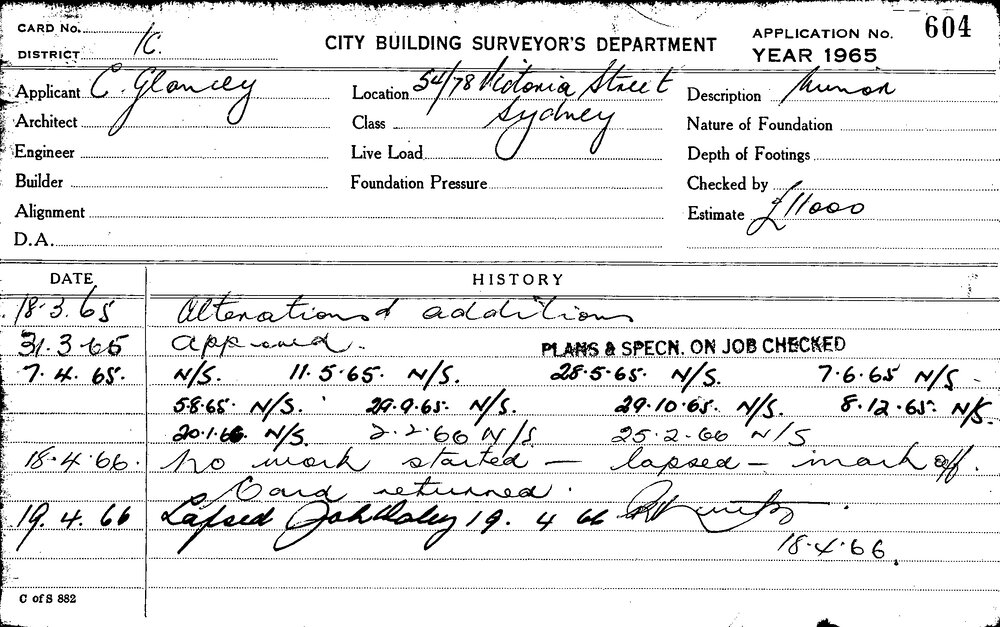 CARD No.
DISTRICT 1C.
CITY BUILDING SURVEYOR'S DEPARTMENT
APPLICATION No. 604
YEAR 1965
Applicant C. Glancey
Location 54/78 Victoria Street
Sydney
Description Minor
Architect
Class
Nature of Foundation
Engineer
Live Load
Depth of Footings
Builder
Foundation Pressure
Checked by
Alignment
Estimate £11000
D.A.
DATE HISTORY
18.3.65 Alterations & additions
31.3.65 approved. PLANS & SPECN. ON JOB CHECKED
7.4.65. N/S. 11.5.65. N/S. 28.5.65. N/S. 7.6.65 N/S.
5.8.65. N/S. 29.9.65. N/S. 29.10.65. N/S. 8.12.65. N/S.
20.1.66. N/S. 2.2.66 N/S 25.2.66 N/S
18.4.66. No work started — lapsed — mark off.
Card returned.
19.4.66 Lapsed 19.4.66
18.4.66.
C of S 882